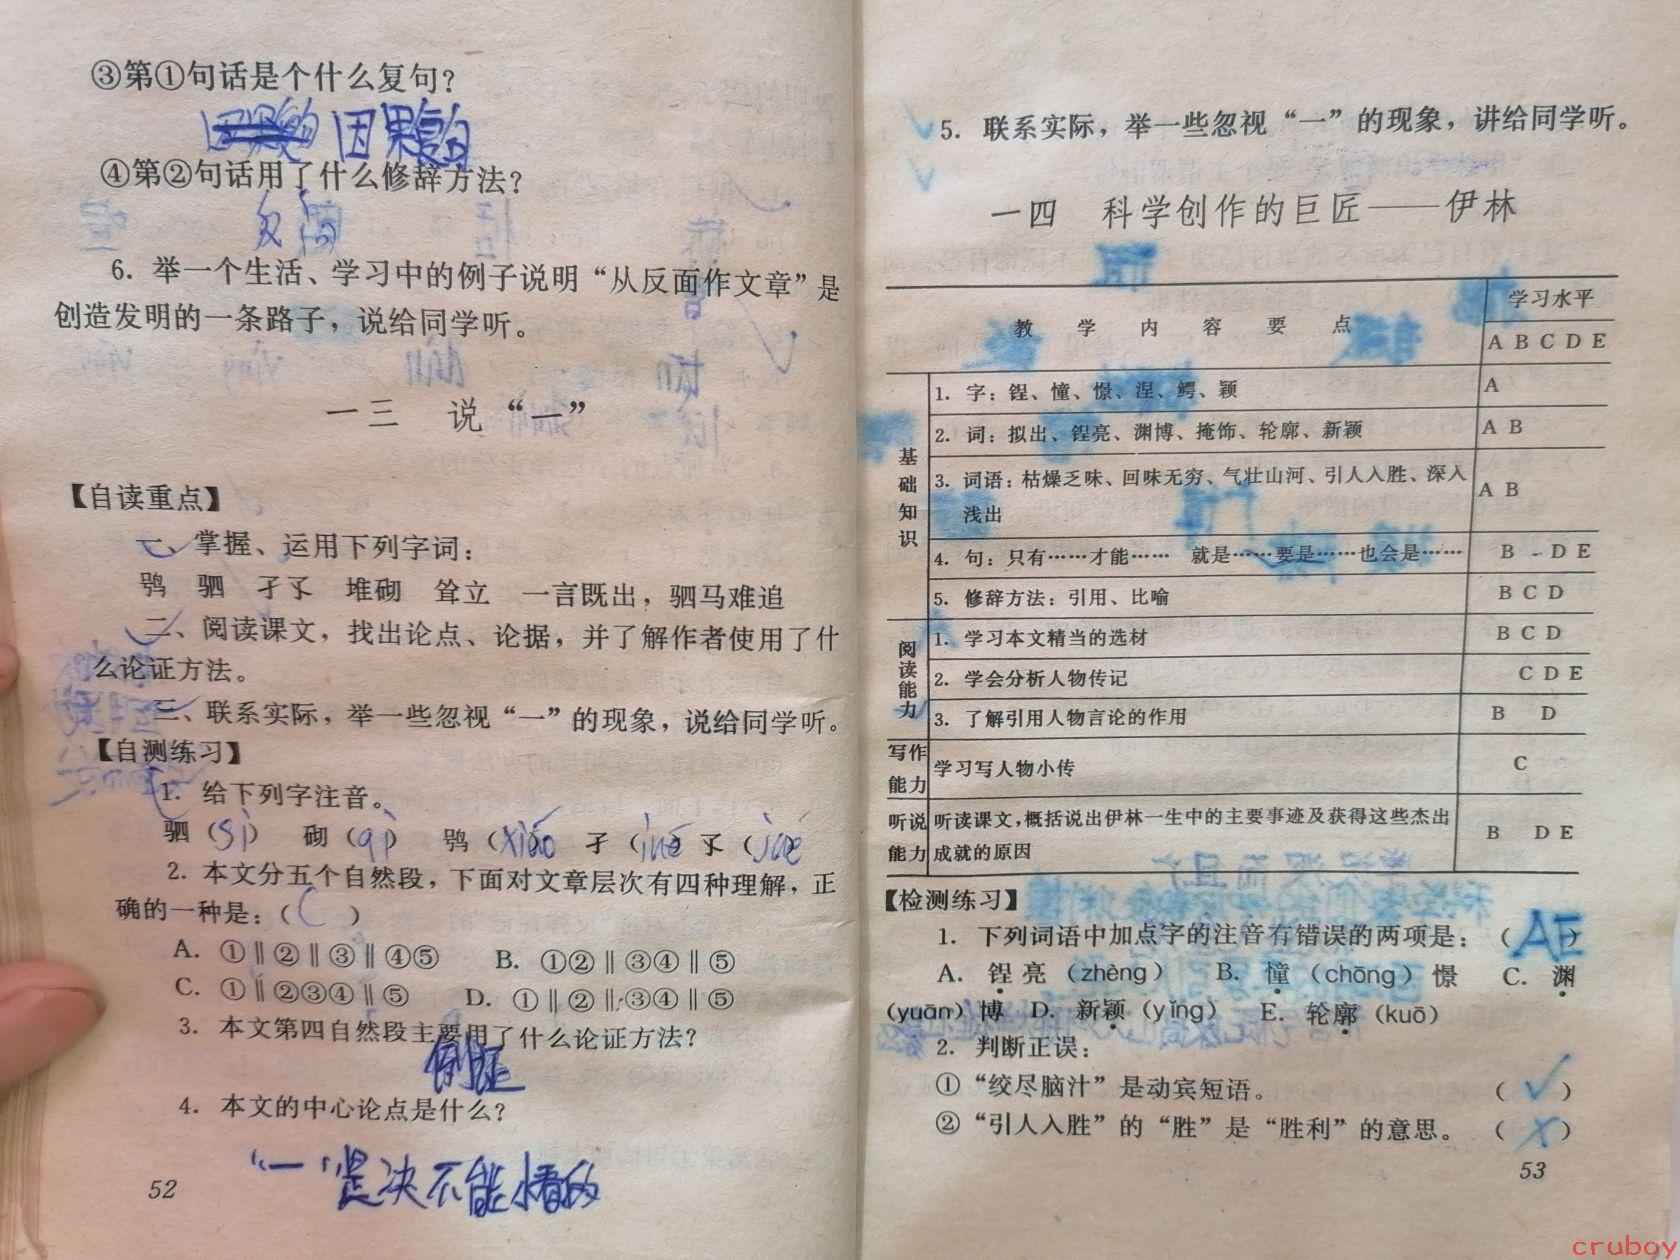 ③第①句话是个什么复句？
因果复句
④第②句话用了什么修辞方法？
6. 举一个生活、学习中的例子说明“从反面作文章”是
创造发明的一条路子，说给同学听。
一三 说“一”
【自读重点】
一、掌握、运用下列字词：
鸮 驷 孑孓 堆砌 耸立 一言既出，驷马难追
二、阅读课文，找出论点、论据，并了解作者使用了什
么论证方法。
三、联系实际，举一些忽视“一”的现象，说给同学听。
【自测练习】
1. 给下列字注音。
驷（sì） 砌（qì） 鸮（xiāo） 孑（jié） 孓（jué）
2. 本文分五个自然段，下面对文章层次有四种理解，正
确的一种是：（C）
A. ①‖②‖③‖④⑤ B. ①②‖③④‖⑤
C. ①‖②③④‖⑤ D. ①‖②‖③④‖⑤
3. 本文第四自然段主要用了什么论证方法？
例证
4. 本文的中心论点是什么？
“一”是决不能小看的
52
5. 联系实际，举一些忽视“一”的现象，讲给同学听。
一四 科学创作的巨匠——伊林
教学内容要点 学习水平
A B C D E
基础知识
1. 字：锃、憧、憬、涅、鳄、颖 A
2. 词：拟出、锃亮、渊博、掩饰、轮廓、新颖 A B
3. 词语：枯燥乏味、回味无穷、气壮山河、引人入胜、深入
浅出 A B
4. 句：只有……才能…… 就是……要是……也会是…… B D E
5. 修辞方法：引用、比喻 B C D
阅读能力
1. 学习本文精当的选材 B C D
2. 学会分析人物传记 C D E
3. 了解引用人物言论的作用 B D
写作能力
学习写人物小传 C
听说能力
听读课文，概括说出伊林一生中的主要事迹及获得这些杰出
成就的原因 B D E
【检测练习】
1. 下列词语中加点字的注音有错误的两项是：（AE）
A. 锃亮（zhèng） B. 憧（chōng）憬 C. 渊
（yuān）博 D. 新颖（yǐng） E. 轮廓（kuō）
2. 判断正误：
①“绞尽脑汁”是动宾短语。（√）
②“引人入胜”的“胜”是“胜利”的意思。（X）
53
cruboy